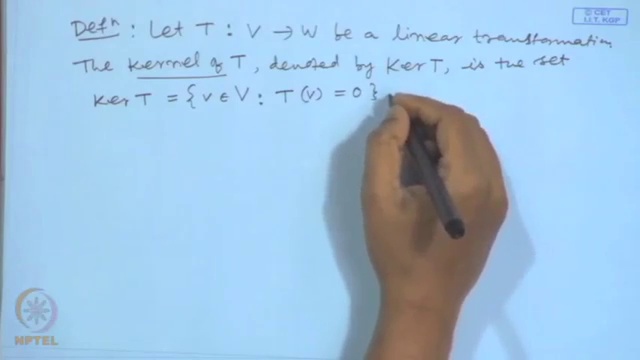 © CET
I.I.T. KGP
Defⁿ : Let T : V → W be a linear transformation
The Kernel of T, denoted by Ker T, is the set
Ker T = { v ∈ V : T (v) = 0 }
NPTEL